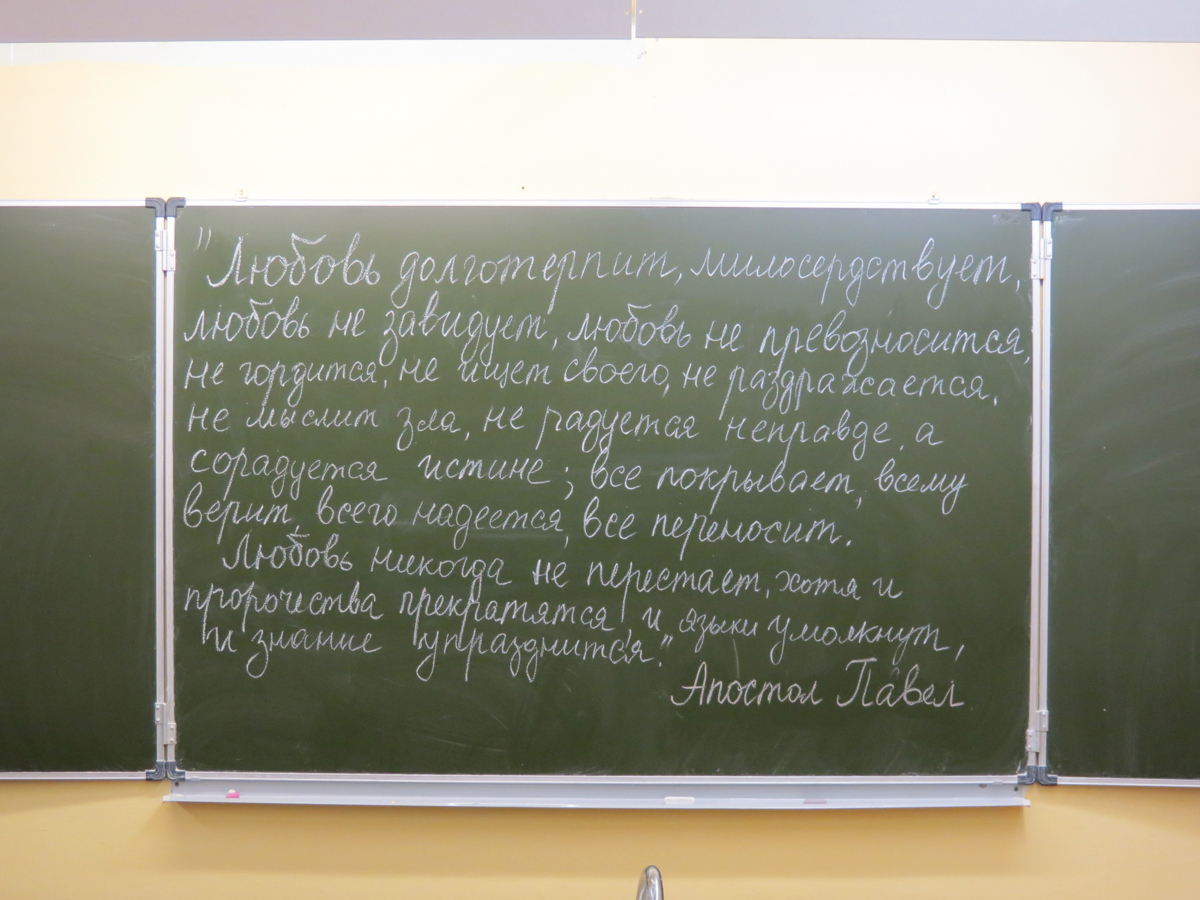 "Любовь долготерпит, милосердствует,
любовь не завидует, любовь не превозносится,
не гордится, не ищет своего, не раздражается,
не мыслит зла, не радуется неправде, а
сорадуется истине; все покрывает, всему
верит, всего надеется, все переносит.
Любовь никогда не перестает, хотя и
пророчества прекратятся и языки умолкнут,
и знание упразднится."
Апостол Павел